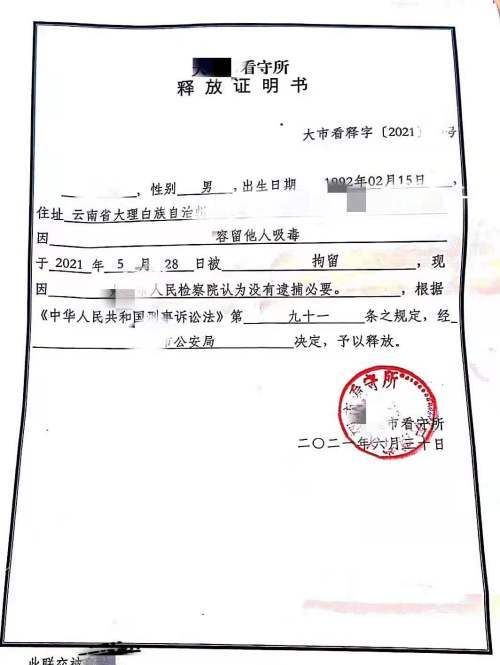 大 看守所
释放证明书
大市看释字〔2021〕 号
，性别 男 ，出生日期 1992年02月15日，
住址 云南省大理白族自治州
因 容留他人吸毒
于 2021 年 5 月 28 日被 拘留 ，现
因 人民检察院认为没有逮捕必要。，根据
《中华人民共和国刑事诉讼法》第 九十一 条之规定，经
市公安局 决定，予以释放。
看守所
市看守所
二〇二一年六月三十日
此联交被